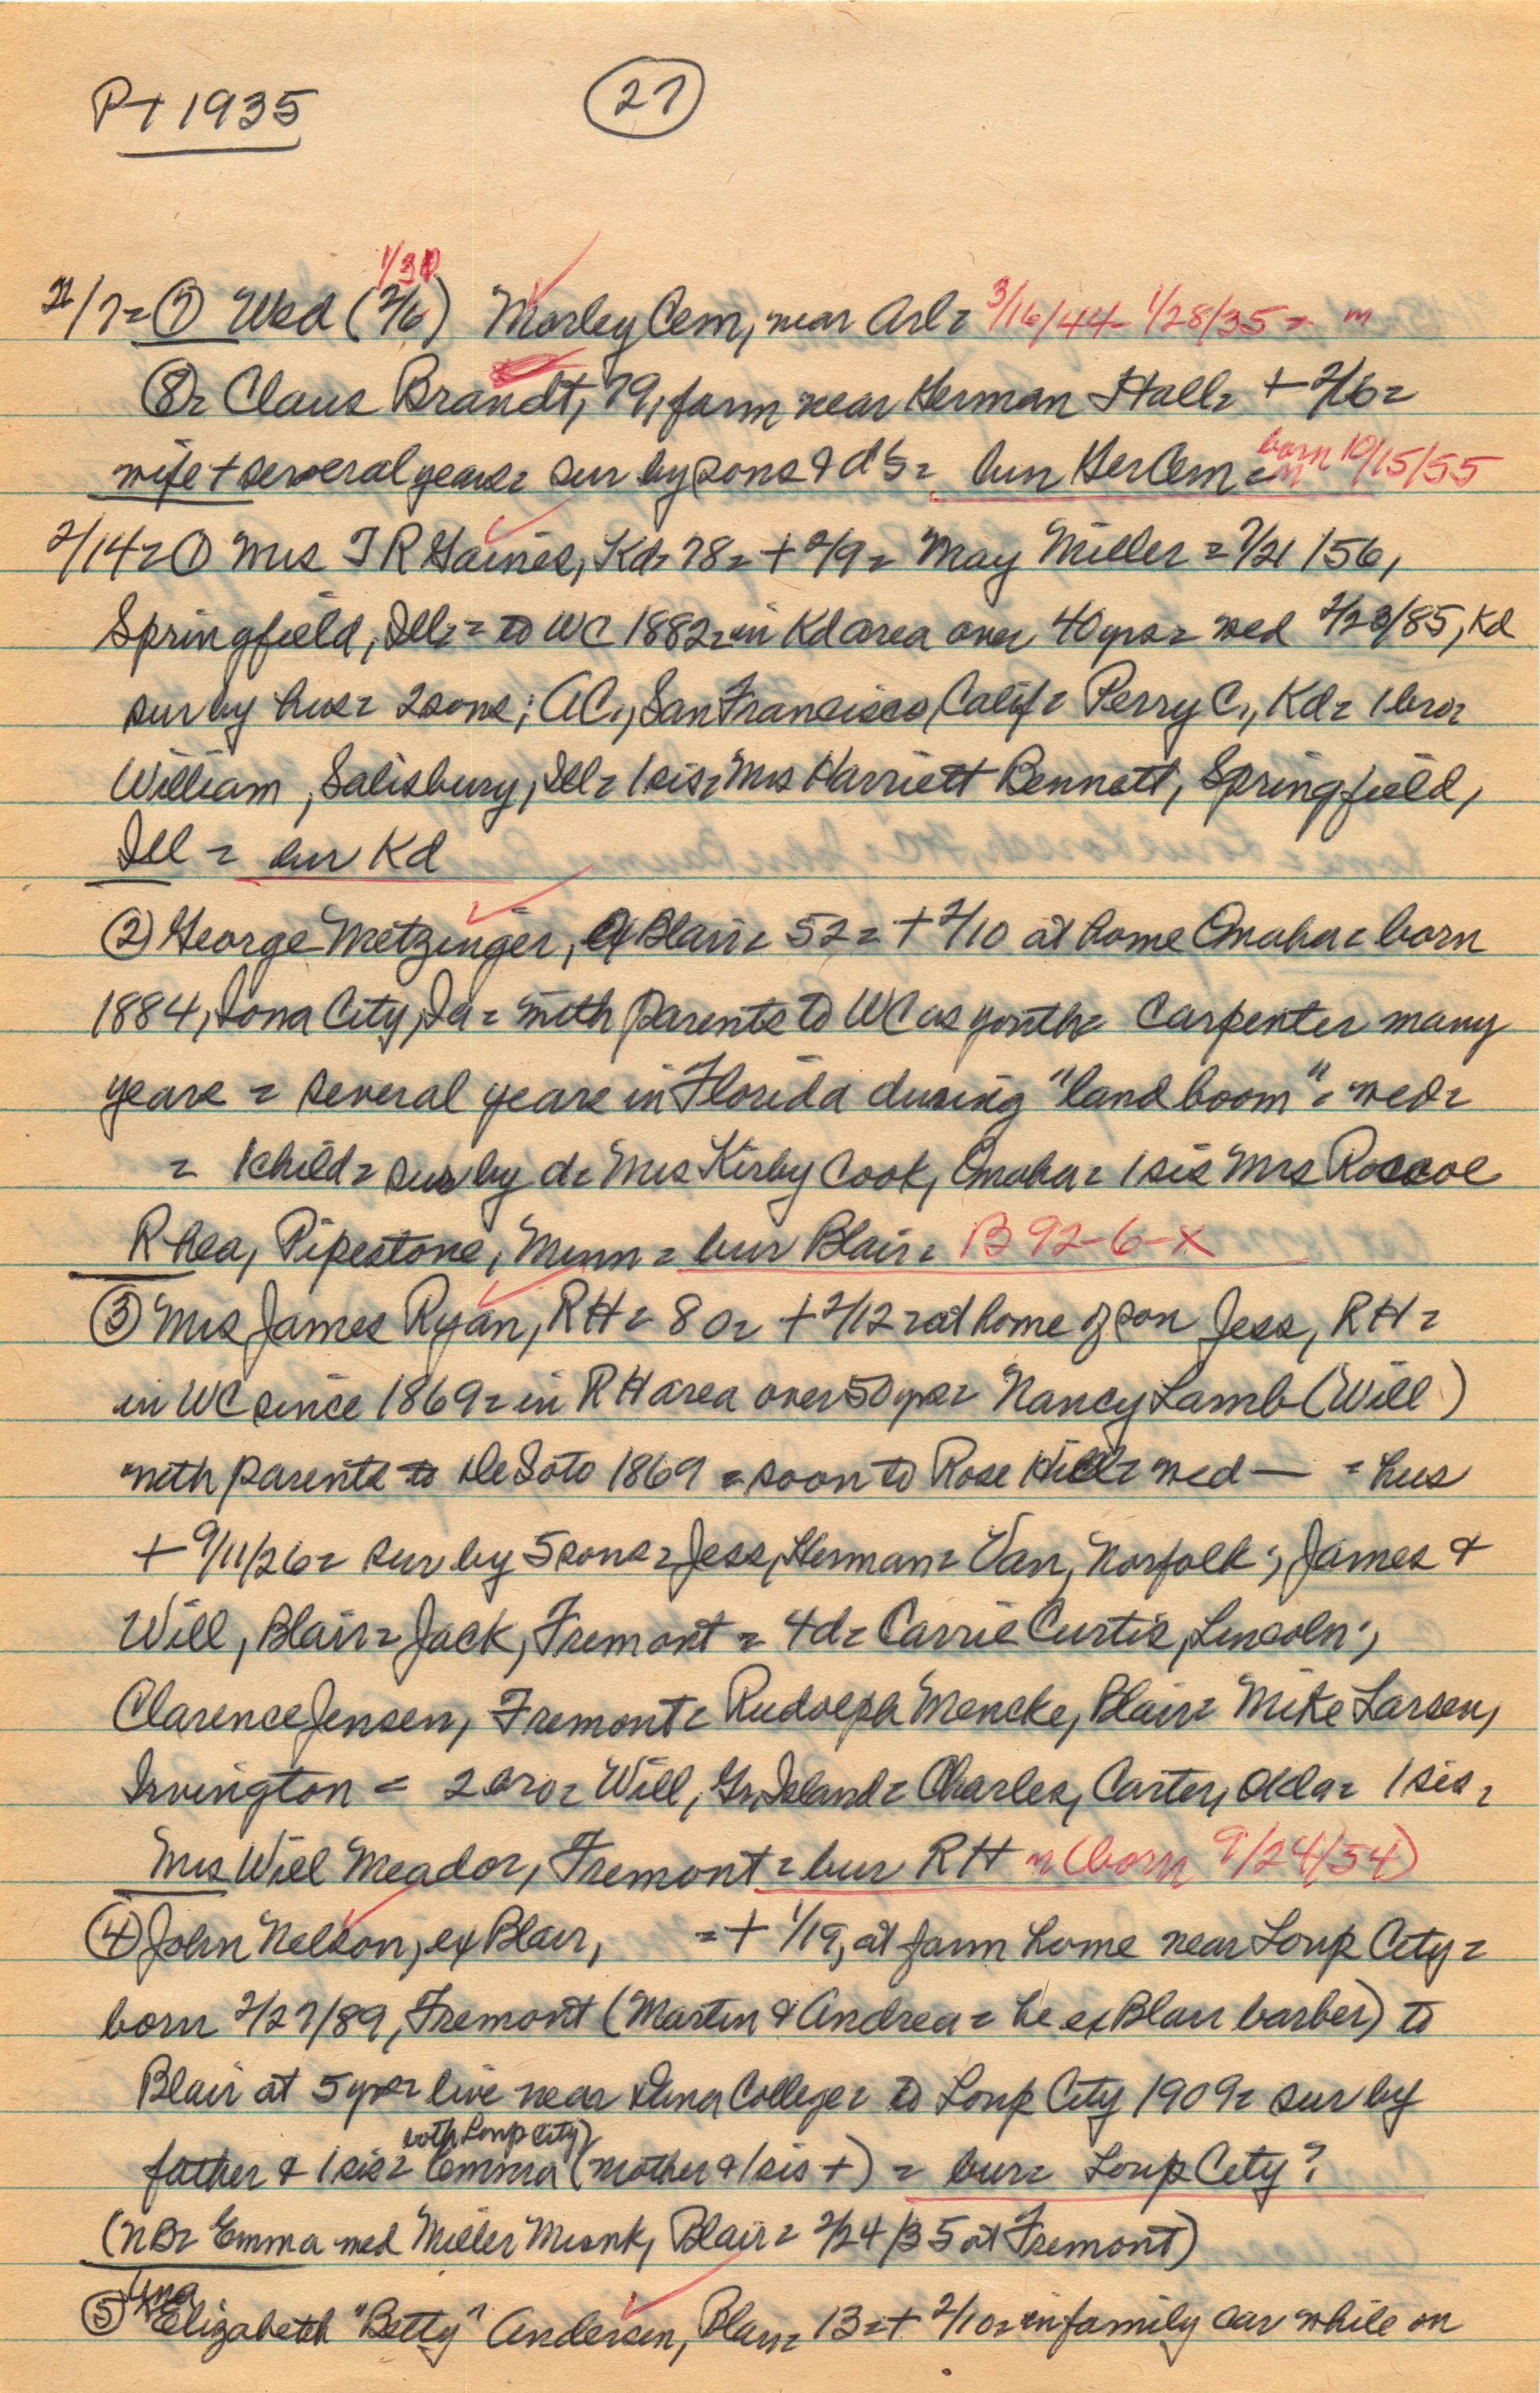 PT 1935
27
1/30
2/7= ⑦ Wed (2/6) Morley Cem, near Arl= 3/16/44- 1/28/35= m
⑧= Claus Brandt, 79, farm near Herman Hall= + 2/6=
wife + several years= sur by sons & d's= bur Her Cem= m born 10/15/55
2/14= ① Mrs T R Gaines, Kd= 78= + 2/9= May Miller = 7/21/56,
Springfield, Ill= = to WC 1882= in Kd area over 40 yrs= wed 2/23/85, Kd
sur by hus= 2 sons; A C., San Francisco, Calif= Perry C., Kd= 1 bro=
William, Salisbury, Ill= 1 sis= Mrs Harriett Bennett, Springfield,
Ill = bur Kd
② George Metzinger, ex Blair= 52= + 2/10 at home Omaha= born
1884, Iowa City, Ia = with parents to WC as youth= Carpenter many
years = several years in Florida during "land boom" = wed=
= 1 child= sur by d= Mrs Kirby Cook, Omaha= 1 sis Mrs Roscoe
Rhea, Pipestone, Minn = bur Blair= B 92-6-X
③ Mrs James Ryan, RH= 80= + 2/12= at home of son Jess, RH=
in WC since 1869= in RH area over 50 yrs= Nancy Lamb (Will )
with parents to DeSoto 1869 = soon to Rose Hill= wed — = hus
+ 9/11/26= sur by 5 sons= Jess, Herman= Van, Norfolk; James &
Will, Blair= Jack, Fremont = 4 d= Carrie Curtis, Lincoln;
Clarence Jensen, Fremont= Rudolph Mencke, Blair= Mike Larsen,
Irvington = 2 bro= Will, Gr, Island= Charles, Carter, Okla= 1 sis=
Mrs Will Meador, Fremont= bur RH m (born 9/24/54)
④ John Nelson, ex Blair, = + 1/19, at farm home near Loup City=
born 2/27/89, Fremont (Martin & Andrea= he ex Blair barber) to
Blair at 5 yrs= live near Dana College= to Loup City 1909= sur by
both Loup City)
father & 1 sis= Emma (mother & 1 sis +) = bur= Loup City?
(NB= Emma wed Miller Monk, Blair= 2/24/35 at Fremont)
Una
⑤ Elizabeth "Betty" Andersen, Blair= 13= + 2/10= in family car while on